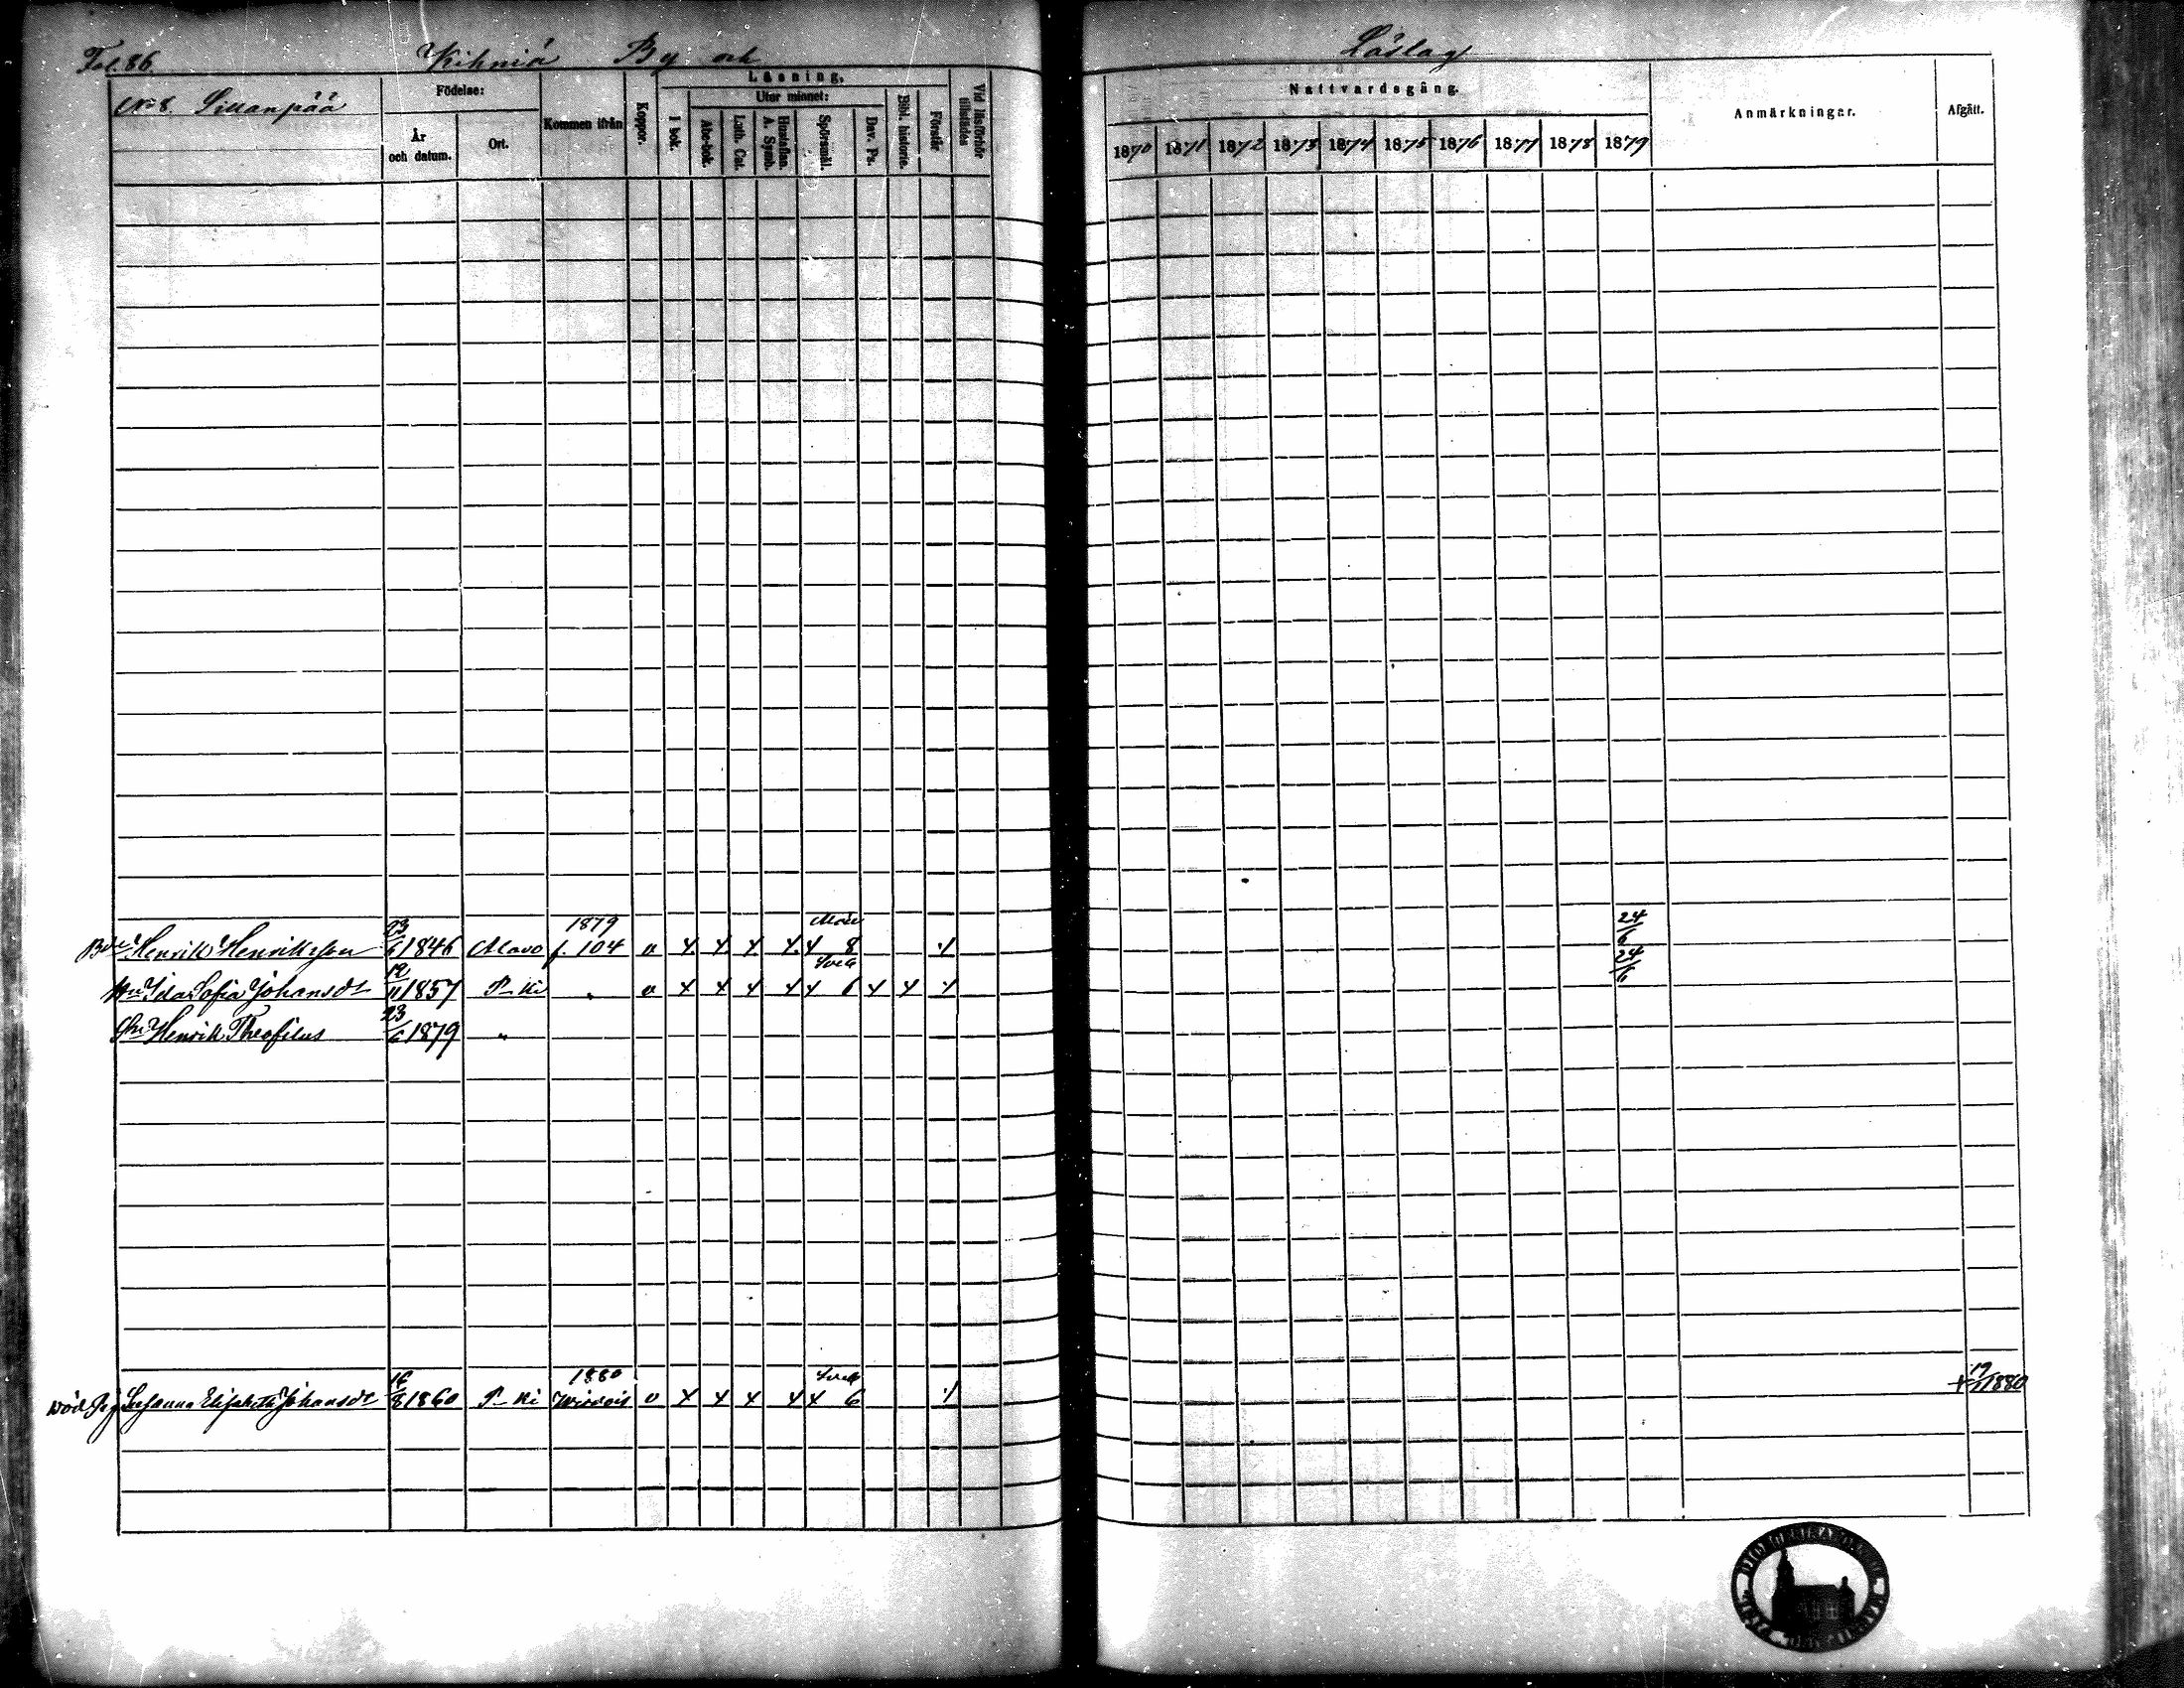 Fol. 86. Kihniö By och Läslag
No 8. Sillanpää
Födelse:
År och datum.
Ort.
Kommen ifrån
Koppor.
Läsning.
I bok.
Utur minnet:
Abc-bok.
Luth. Cat.
Hustaflan. A. Symb.
Spörsmål.
Dav. Ps.
Bibl. historie.
Förstår
Vid läsförhör tillstädes
Nattvardsgång.
1870 1871 1872 1873 1874 1875 1876 1877 1878 1879
Anmärkningar.
Afgått.
Henrik Henriksson 23/6 1846 Alavo 1879 f. 104 v 8 24/6
Hu Ida Sofia Johansdr 12/11 1857 P-ki " v 6 24/6
Sn Henrik Theofilus 23/6 1879 "
Susanna Elisabeth Johansdr 16/8 1860 P-ki 1880 Wirdois v 6 1880